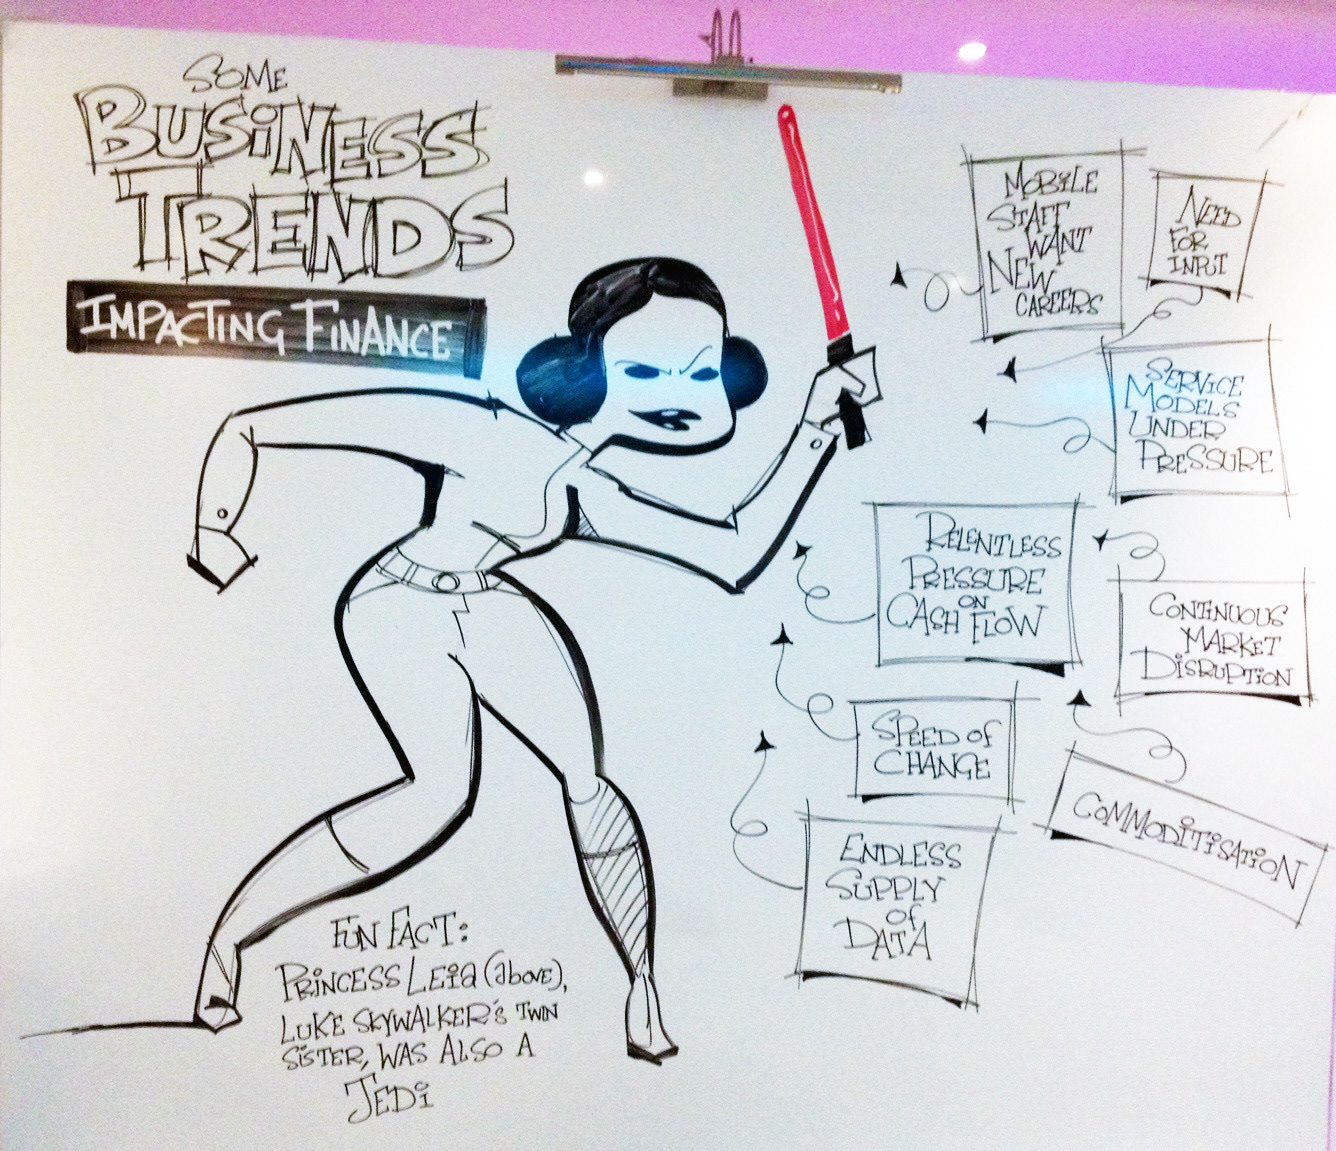 SOME
BUSINESS
TRENDS
IMPACTING FINANCE
MOBILE
STAFF
WANT
NEW
CAREERS
NEED
FOR
INPUT
SERVICE
MODELS
UNDER
PRESSURE
RELENTLESS
PRESSURE
ON
CASH FLOW
CONTINUOUS
MARKET
DISRUPTION
SPEED OF
CHANGE
COMMODITISATION
ENDLESS
SUPPLY
OF
DATA
FUN FACT:
PRINCESS LEIA (ABOVE),
LUKE SKYWALKER'S TWIN
SISTER, WAS ALSO A
JEDI